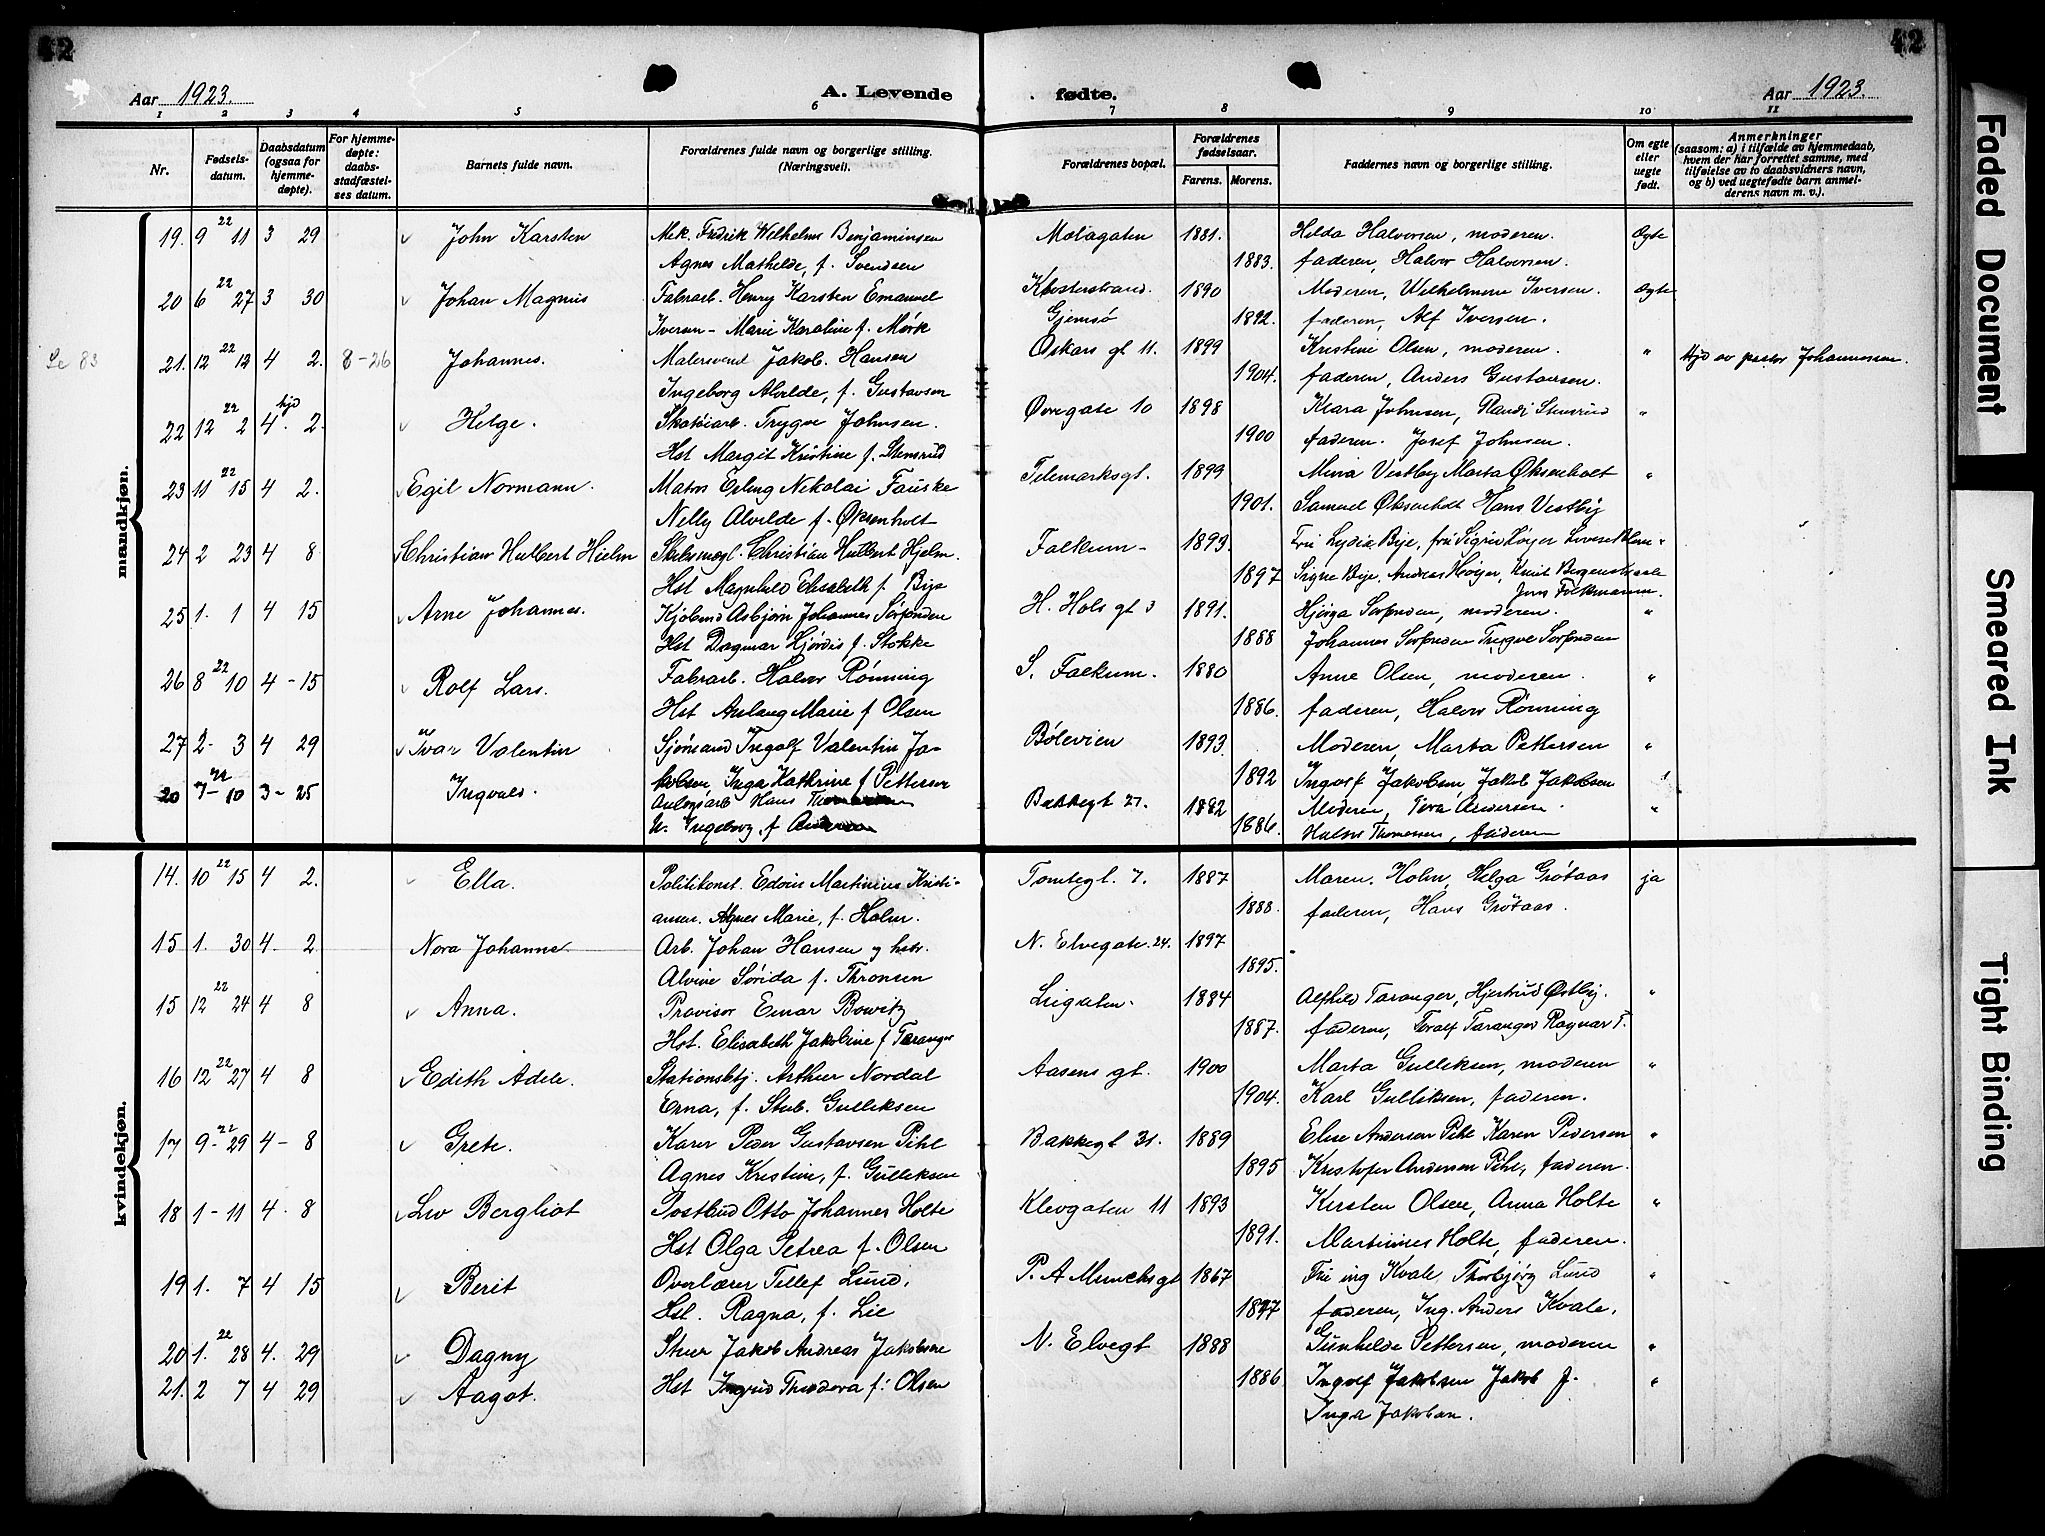 42 42
Aar 1923. A. Levende fødte. Aar 1923.
1 2 3 4 5 6 7 8 9 10 11
Nr. Fødsels-datum. Daabsdatum (ogsaa for hjemme-døpte). For hjemme-døpte: daabs-stadfæstel-ses datum. Barnets fulde navn. Forældrenes fulde navn og borgerlige stilling. (Næringsvei). Forældrenes bopæl. Forældrenes fødselsaar. Farens. Morens. Faddernes navn og borgerlige stilling. Om egte eller uegte født. Anmerkninger (saasom: a) i tilfælde av hjemmedaab, hvem der har forrettet samme, med tilføielse av to daabsvidners navn, og b) ved uegtefødte barn anmel-derens navn m. v.).
mandkjøn.
19. 9 22 11 3 29 John Karsten Mek. Fredrik Wilhelm Benjaminsen Molagaten 1881. Hilda Halvorsen, moderen. Ægte
Agnes Mathilde, f. Svendsen 1883. faderen, Halvor Halvorsen.
20 6 22 27 3 30 Johan Magnus Fabrarb. Henry Karsten Emanuel Klosterstrand. 1890 Moderen, Wilhelmine Iversen. Ægte
Iversen - Marie Karoline f. Mørk Gjemsø 1892. faderen, Alf Iversen.
21. 12 22 12 4 2. 8-26 Johannes. Malersvend Jakob Hansen Oskars gt 11. 1899 Kristine Olsen, moderen. " Hjd av pastor Johannessen.
Ingeborg Alvilde, f. Gustavsen 1904. faderen, Anders Gustavsen.
22 12 22 2 4. hjd 2. Helge. Skotøiarb. Trygve Johnsen. Øvregate 10 1898 Klara Johnsen, Randi Stensrud "
Hst Margit Kristine f. Stensrud 1900 faderen. Josef Johnsen.
23 11 22 15 4 2. Egil Normann. Matros Erling Nikolai Fauske Telemarksgt. 1899 Minia Vestby Marta Øksenholt "
Nelly Alvilde f. Øksenholt 1901. Samuel Øksenholt Hans Vestby
24 2 23 4 8 Christian Hulbert Hielm Christian Hulbert Hjelm. Falkum - 1893 Fru Lydia Bije, fru Sigrid Høyer "
Hst Magnhild Elisabeth f. Bije 1897 Signe Bije, Andreas Høyer, Knut
Jens Folkmann.
25 1. 1 4 15 Arne Johannes. Asbjørn Johannes Sørensen H. Hols gt 3 1891. moderen. "
Hst Dagmar Hjørdis f. Stokke 1888 Johannes
26 8 22 10 4 - 15 Rolf Lars. Fabrarb. Halvor Rønning S. Falkum. 1880 Anne Olsen, moderen. "
Hst Aslaug Marie f Olsen 1886. faderen, Halvor Rønning
27 2- 3 4 29 Ivar Valentin Sjømand Ingolf Valentin Ja- Bølevien 1893 Moderen, Marta Pettersen "
kobsen, Inga Kathrine f Pettersen 1892 Ingolf Jakobsen, Jakob Jakobsen
20 7 22 - 10 3 - 25 Ingvald. Hans Bakkegt 27. 1882 Moderen, Tora Andersen. "
Ingeborg, f 1886. Halvor Thomassen, faderen
kvindekjøn.
14. 10 22 15 4 2. Ella. Politikonst. Edvin Martinius Kristi- Tomtegt. 7. 1887 Maren Holm, Helga Grøtaas ja
ansen. Agnes Marie, f. Holm. 1888. faderen, Hans Grøtaas.
15 1. 30 4 - 2 Nora Johanne Arb. Johan Hansen og hstr. N. Elvegate. 24. 1897
Alvine Sørida f. Thronsen 1895.
15 12 22 24 4 8 Anna. Provisor Einar Bowitz Ligaten. 1884 Alfhild Taranger, Hjertrud Østby. "
Hst. Elisabeth Jakobine f Taranger 1887. faderen, Toralf Taranger Ragnar T.
16 12 22 27 4 8 Edith Adele. Stationsbtj. Arthur Nordal Aasens gt. 1900 Marta Gulliksen, moderen "
Erna, f. Stub. Gulliksen 1904. Karl Gulliksen, faderen.
17 9 - 22 29 4 - 8 Grete. Peder Gustavsen Pihl Bakkegt 31. 1889 Elise Andersen Pihl Karen Pedersen "
Agnes Kristine, f. Gulliksen 1895 Kristofer Andersen Pihl, faderen.
18 1 - 11 4. 8 Liv Bergliot Postbud Otto Johannes Holte Klevgaten 11 1893 Kirsten Olsen, Anna Holte "
Hst Olga Petrea f. Olsen 1891. Martinius Holte, faderen.
19 1. 7 4 15 Berit Overlærer Tellef Lund. P. A Munchsgt 1867 Fru ing Kvale, Thorbjørg Lund "
Hst. Ragna, f. Lie 1877 faderen, Ing. Anders Kvale.
20 1. 22 28 4. 29 Dagny Jakob Andreas Jakobsen N. Elvegt 1888 Gunhilde Pettersen, moderen "
21. 2 7 4 29 Aagot. Hst Ingrid Theodora f. Olsen 1886 Ingolf Jakobsen Jakob J. "
Inga Jakobsen.
Se 83
Faded Document
Smeared Ink
Tight Binding